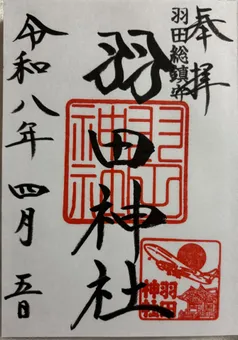 奉拝
羽田総鎮守
羽田神社
令和八年四月五日
羽田神社
羽田神社